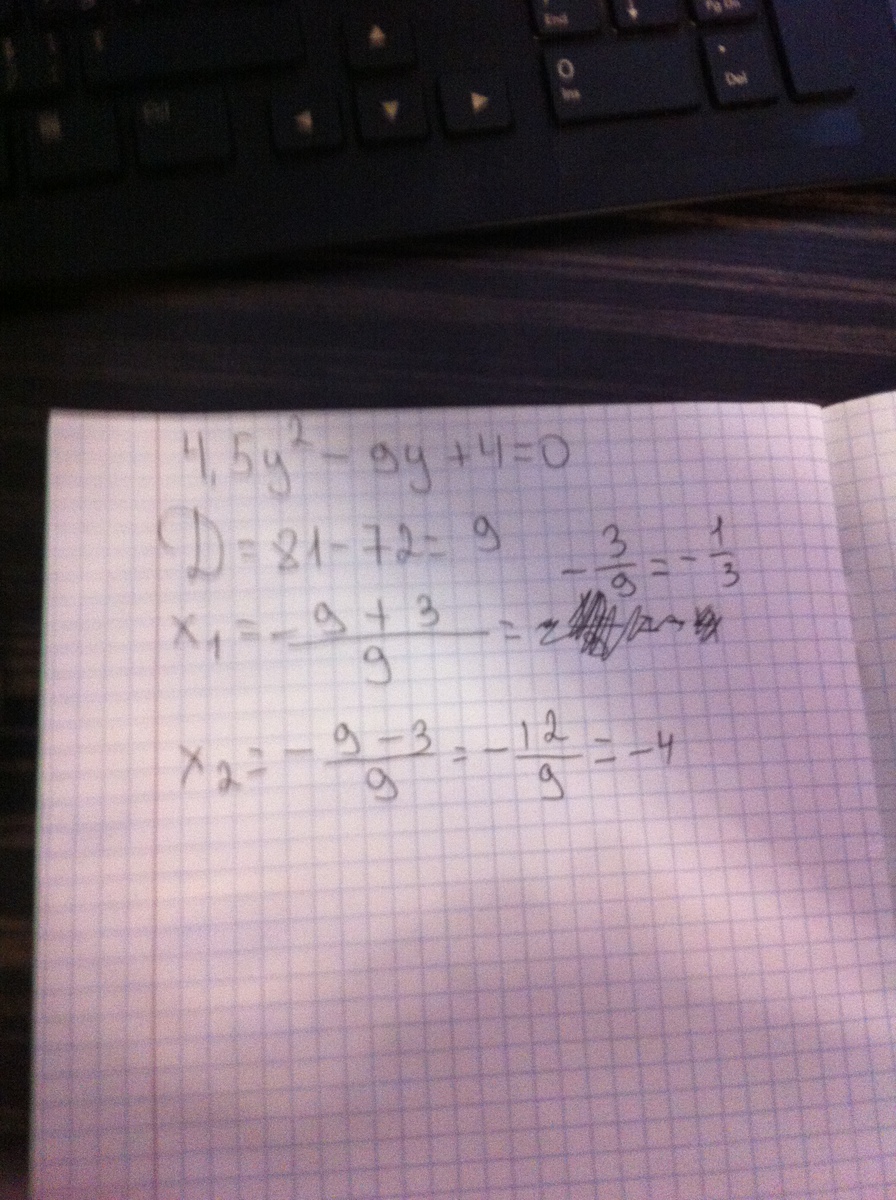 End
Pg Dn
0
Ins
.
Del
4,5y² - 9y + 4 = 0
D = 81 - 72 = 9
- 3/9 = - 1/3
x₁ = - 9 + 3 / 9 =
x₂ = - 9 - 3 / 9 = - 12/9 = -4